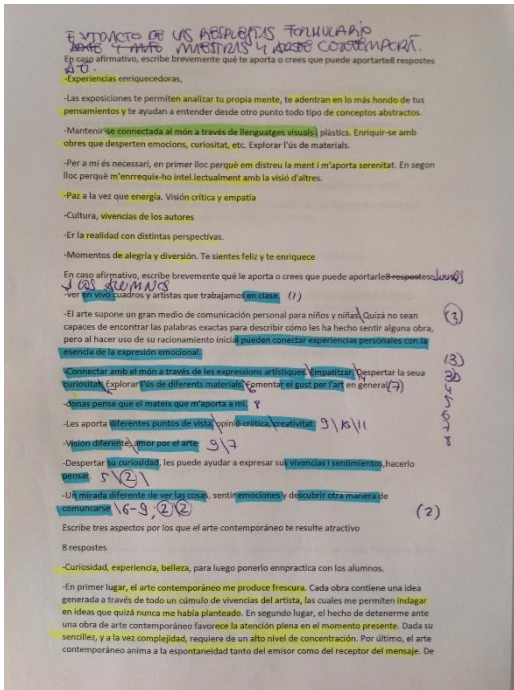 EXTRACTO DE LAS RESPUESTAS FORMULARIO
MAESTRAS Y ARTE CONTEMPORÁ.
En caso afirmativo, escribe brevemente qué te aporta o crees que puede aportarte8 respostes
A TI.
-Experiencias enriquecedoras,
-Las exposiciones te permiten analizar tu propia mente, te adentran en lo más hondo de tus
pensamientos y te ayudan a entender desde otro punto todo tipo de conceptos abstractos.
-Mantenir-se connectada al món a través de llenguatges visuals i plàstics. Enriquir-se amb
obres que desperten emocions, curiositat, etc. Explorar l'ús de materials.
-Per a mi és necessari, en primer lloc perquè em distreu la ment i m'aporta serenitat. En segon
lloc perquè m'enrrequix-ho intel.lectualment amb la visió d'altres.
-Paz a la vez que energía. Visión crítica y empatía
-Cultura, vivencias de los autores
-Er la realidad con distintas perspectivas.
-Momentos de alegría y diversión. Te sientes feliz y te enriquece
En caso afirmativo, escribe brevemente qué le aporta o crees que puede aportarle8 respostes
A LOS ALUMNOS
-ver en vivo cuadros y artistas que trabajamos en clase. (1)
-El arte supone un gran medio de comunicación personal para niños y niñas. Quizá no sean (2)
capaces de encontrar las palabras exactas para describir cómo les ha hecho sentir alguna obra,
pero al hacer uso de su racionamiento inicial pueden conectar experiencias personales con la
esencia de la expresión emocional.
(3)
-Connectar amb el món a través de les expressions artístiques. Empatitzar. Despertar la seua
curiositat. Explorar l'ús de diferents materials. Fomentar el gust per l'art en general (7)
4
5
6
7
8
-donas pense que el mateix que m'aporta a mi. 8
-Les aporta diferentes puntos de vista, opinió crítica, creativitat 9 \ 10 \ 11
-Vision diferente, amor por el arte 9 \ 7
-Despertar su curiosidad, les puede ayudar a expresar sus vivencias i sentimientos, hacerlo
pensar. 5 \ (2) \
-Un mirada diferente de ver las cosas, sentir emociones y descubrir otra manera de
comuncarse \ 6-9 (2) (2) (2)
Escribe tres aspectos por los que el arte contemporáneo te resulte atractivo
8 respostes
-Curiosidad, experiencia, belleza, para luego ponerlo ennpractica con los alumnos.
-En primer lugar, el arte contemporáneo me produce frescura. Cada obra contiene una idea
generada a través de todo un cúmulo de vivencias del artista, las cuales me permiten indagar
en ideas que quizá nunca me había planteado. En segundo lugar, el hecho de detenerme ante
una obra de arte contemporáneo favorece la atención plena en el momento presente. Dada su
sencillez, y a la vez complejidad, requiere de un alto nivel de concentración. Por último, el arte
contemporáneo anima a la espontaneidad tanto del emisor como del receptor del mensaje. De